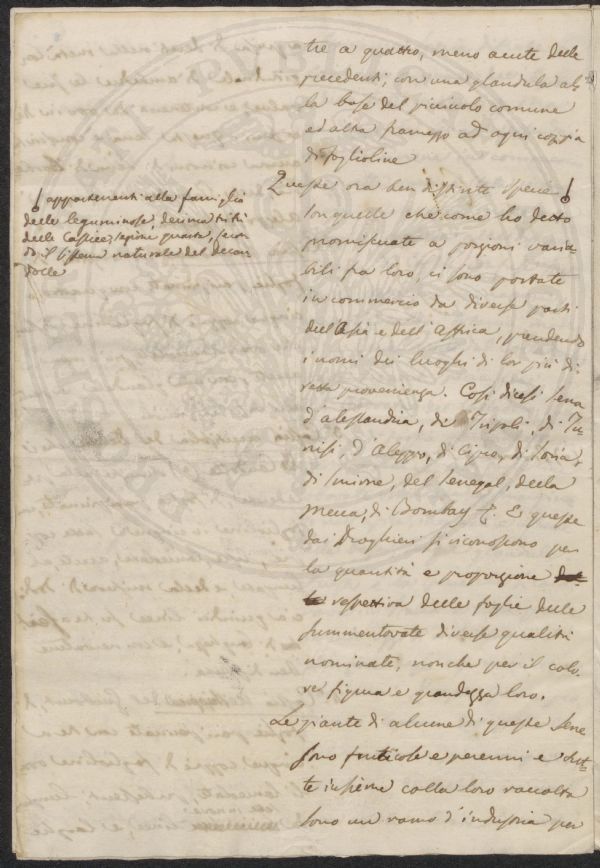 tre a quattro, meno acute delle
precedenti; con una glandula al-
la base del picciuolo comune
ed altra frammezzo ad ogni coppia
di foglioline
Queste ora ben distinte specie
son quelle che come ho detto
promiscuate a porzioni varia-
bili fra loro, ci sono portate
in commercio da diverse parti
dell'Asia e dell'Affrica, prendendo
i nomi dei luoghi di lor più di-
retta provenienza. Così dicesi Sena
d'alessandria, di Tripoli, di Tu-
nisi, d'Aleppo, di Cipro, di Soria,
di Smirne, del Senegal, della
Mecca, di Bombay &. E queste
dai Droghieri si riconoscono per
la quantità e proporzione del-
le respettiva delle foglie delle
summentovate diverse qualità
nominate, nonchè per il colo-
re figura e grandezza loro.
Le piante di alcune di queste Sene
sono fruticose e perenni e tut-
te insieme colla loro raccolta
sono un ramo d'industria per
appartenenti alla famiglia
delle leguminose, decima tribù
delle Cassiee, sezione quarta, secon-
do il sistema naturale del Decan-
dolle